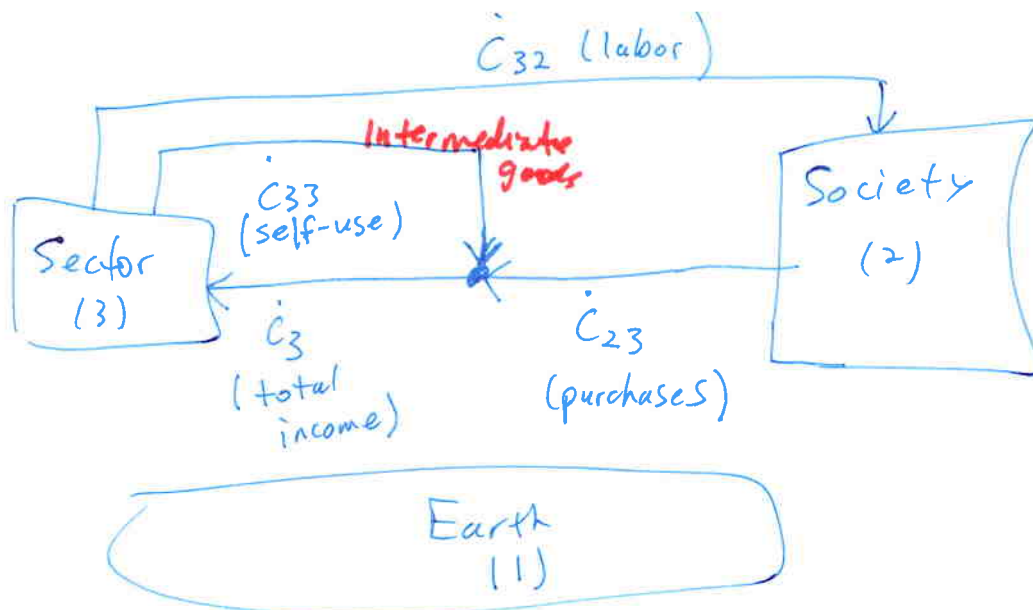 Ċ32 (labor)
Intermediate
goods
Ċ33
(self-use)
Society
(2)
Sector
(3)
Ċ3
(total
income)
Ċ23
(purchases)
Earth
(1)